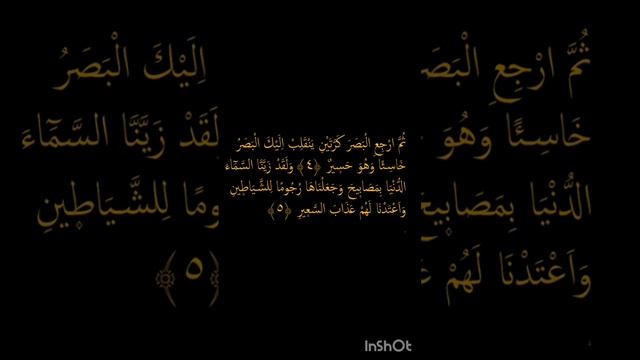 ثُمَّ ارْجِعِ الْبَصَرَ كَرَّتَيْنِ يَنْقَلِبْ اِلَيْكَ الْبَصَرُ
خَاسِئًا وَهُوَ حَسِيرٌ ﴿٤﴾ وَلَقَدْ زَيَّنَّا السَّمَٓاءَ
الدُّنْيَا بِمَصَابِيحَ وَجَعَلْنَاهَا رُجُومًا لِلشَّيَاطٖينِ
وَاَعْتَدْنَا لَهُمْ عَذَابَ السَّعِيرِ ﴿٥﴾
InShOt